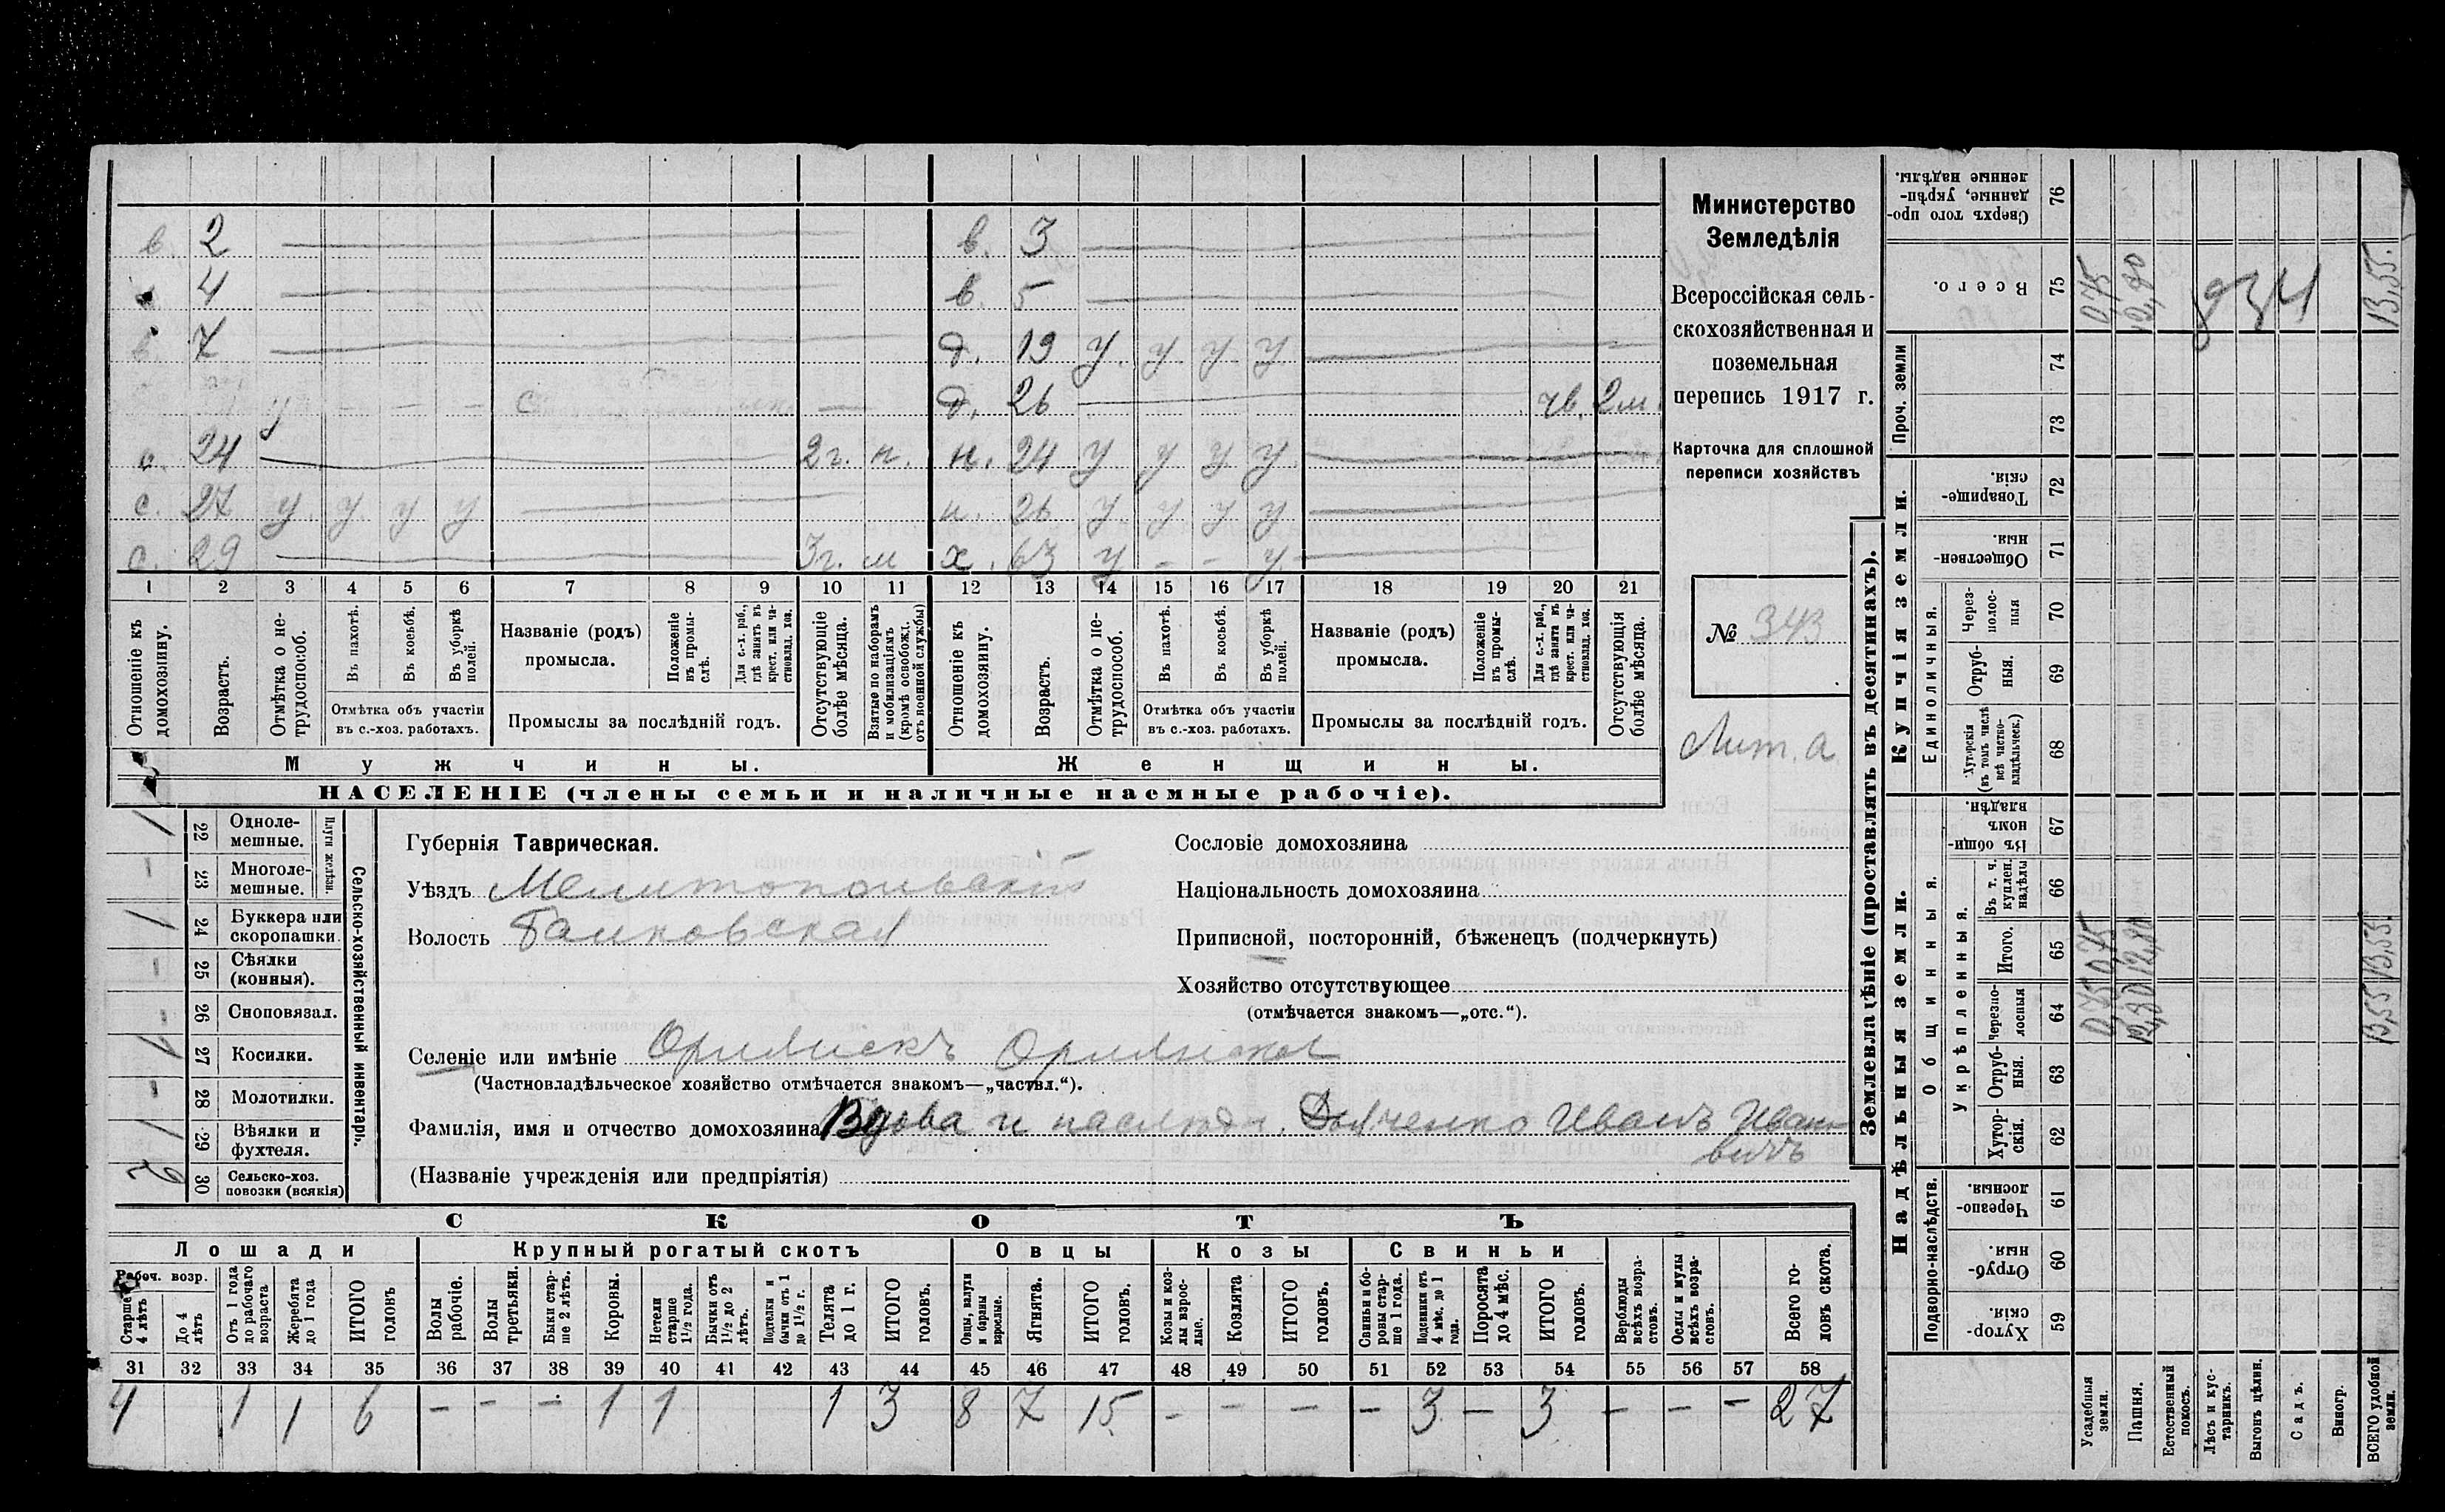 в. 2 — в. 3 —
4 — в. 5 —
в. 7 — д. 19 у. у. у. у. —
у — — — с — д. 26 — чв. 2м.
с. 24 — 2г. н. н. 24 у у у у —
с. 27 у. у. у у — н. 26 у. у у у —
с. 29 — 3г. м х. 63 у — — у —
1 2 3 4 5 6 7 8 9 10 11 12 13 14 15 16 17 18 19 20 21
Отношеніе къ домохозяину.
Возрастъ.
Отмѣтка о нетрудоспособ.
Въ пахотѣ.
Въ косьбѣ.
Въ уборкѣ полей.
Отмѣтка объ участіи въ с.-хоз. работахъ.
Названіе (родъ) промысла.
Положеніе въ промыслѣ.
Для с.-х. раб., гдѣ занятъ въ крест. или частновлад. хоз.
Промыслы за послѣдній годъ.
Отсутствующіе болѣе мѣсяца.
Взятые по наборамъ и мобилизаціямъ (кромѣ освобожд. отъ военной службы)
Отношеніе къ домохозяину.
Возрастъ.
Отмѣтка о нетрудоспособ.
Въ пахотѣ.
Въ косьбѣ.
Въ уборкѣ полей.
Отмѣтка объ участіи въ с.-хоз. работахъ.
Названіе (родъ) промысла.
Положеніе въ промыслѣ.
Для с.-х. раб., гдѣ занята въ крест. или частновлад. хоз.
Промыслы за послѣдній годъ.
Отсутствующія болѣе мѣсяца.
Мужчины.
Женщины.
НАСЕЛЕНІЕ (члены семьи и наличные наемные рабочіе).
Министерство
Земледѣлія
Всероссійская сель-
скохозяйственная и
поземельная
перепись 1917 г.
Карточка для сплошной
переписи хозяйствъ
№ 343
Лит. а
Сельско-хозяйственный инвентарь.
Плуги желѣзн.
22 Однолемешные. 1
23 Многолемешные. —
24 Буккера или скоропашки. 1
25 Сѣялки (конныя). —
26 Сноповязал. —
27 Косилки. 1
28 Молотилки. —
29 Вѣялки и фухтеля. 1
30 Сельско-хоз. повозки (всякія) 2
Губернія Таврическая.
Уѣздъ Мелитопольскій
Волость Балковская
Сословіе домохозяина
Національность домохозяина
Приписной, посторонній, бѣженецъ (подчеркнуть)
Хозяйство отсутствующее
(отмѣчается знакомъ—„отс.“).
Селеніе или имѣніе Орлянскъ Орлянское
(Частновладѣльческое хозяйство отмѣчается знакомъ—„частвл.“).
Фамилія, имя и отчество домохозяина Вдова и наслѣдн. Дьяченко Иванъ Ивано
вичъ
(Названіе учрежденія или предпріятія)
СКОТЪ
Лошади Крупный рогатый скотъ Овцы Козы Свиньи
Рабоч. возр.
Старше 4 лѣтъ
До 4 лѣтъ
Отъ 1 года до рабочаго возраста
Жеребята до 1 года
ИТОГО головъ
Волы рабочіе.
Волы третьяки.
Быки старше 2 лѣтъ.
Коровы.
Нетели старше 1½ года.
Бычки отъ 1½ до 2 лѣтъ.
Подтелки и бычки отъ 1 до 1½ г.
Телята до 1 г.
ИТОГО головъ.
Овцы, валухи и бараны взрослые.
Ягнята.
ИТОГО головъ.
Козы и козлы взрослые.
Козлята
ИТОГО головъ.
Свиньи и боровы старше 1 года.
Подсвинки отъ 4 мѣс. до 1 года.
Поросята до 4 мѣс.
ИТОГО головъ.
Верблюды всѣхъ возрастовъ.
Ослы и мулы всѣхъ возрастовъ.
Всего головъ скота.
31 32 33 34 35 36 37 38 39 40 41 42 43 44 45 46 47 48 49 50 51 52 53 54 55 56 57 58
4 1 1 6 — — — 1 1 1 3 8 7 15 — — — — 3 — 3 — — — 27
Землевладѣніе (проставлять въ десятинахъ).
Надѣльныя земли.
Купчія земли.
Проч. земли
Подворно-наслѣдств.
Общинныя.
Укрѣпленныя.
Единоличныя.
Хуторскія. 59
Отрубныя. 60
Черезполосныя. 61
Хуторскія. 62
Отрубныя. 63
Черезполосныя 64
Итого. 65
Въ т. ч. куплен. надѣлы 66
Въ общинномъ владѣн. 67
Хуторскія (въ томъ числѣ всѣ частновладѣльческ.) 68
Отрубныя. 69
Черезполосныя 70
Общественныя. 71
Товарищескія. 72
73
74
Всего. 75
Сверхъ того проданные, укрѣпленные надѣлы. 76
Усадебныя земли. 0,75 0,75 0,75
Пашня. 12,80 12,80 12,80
Естественный покосъ.
Лѣсъ и кустарникъ.
Выгонъ цѣлин.
Садъ.
Виногр.
ВСЕГО удобной земли. 13,55 13,55. 13,55.
834